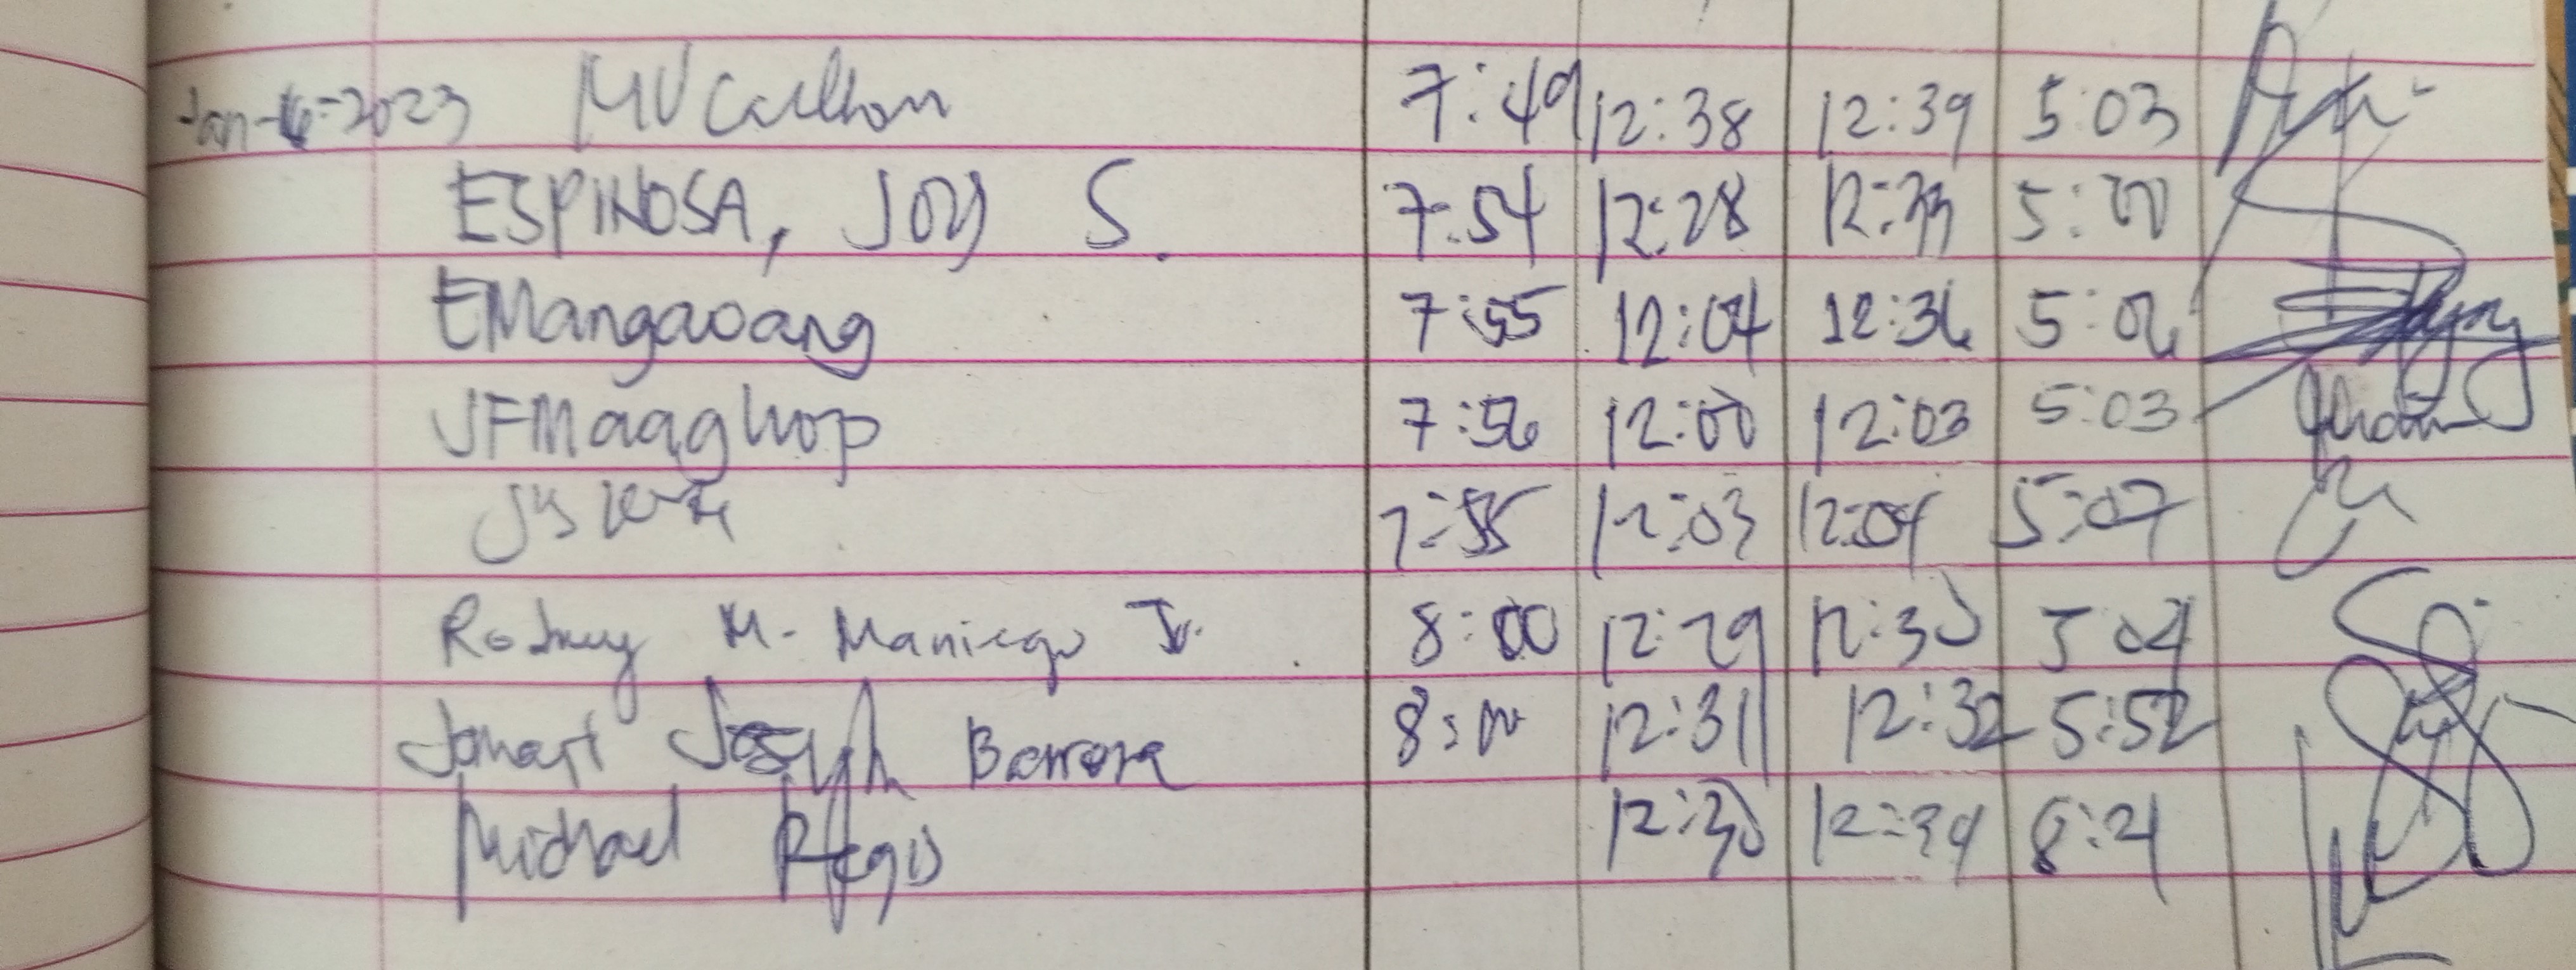 MV 7:49 12:38 12:39 5:03
ESPINOSA, JOY S. 7:54 12:28 12:33 5:00
EMangaoang 7:55 12:04 12:36 5:06
JFMaaghop 7:56 12:00 12:03 5:03
7:55 12:03 12:04 5:07
Rodney M. Maniego Jr. 8:00 12:29 12:30 5:04
Joseph 8:00 12:31 12:32 5:52
Michael Regis 12:30 12:34 8:21